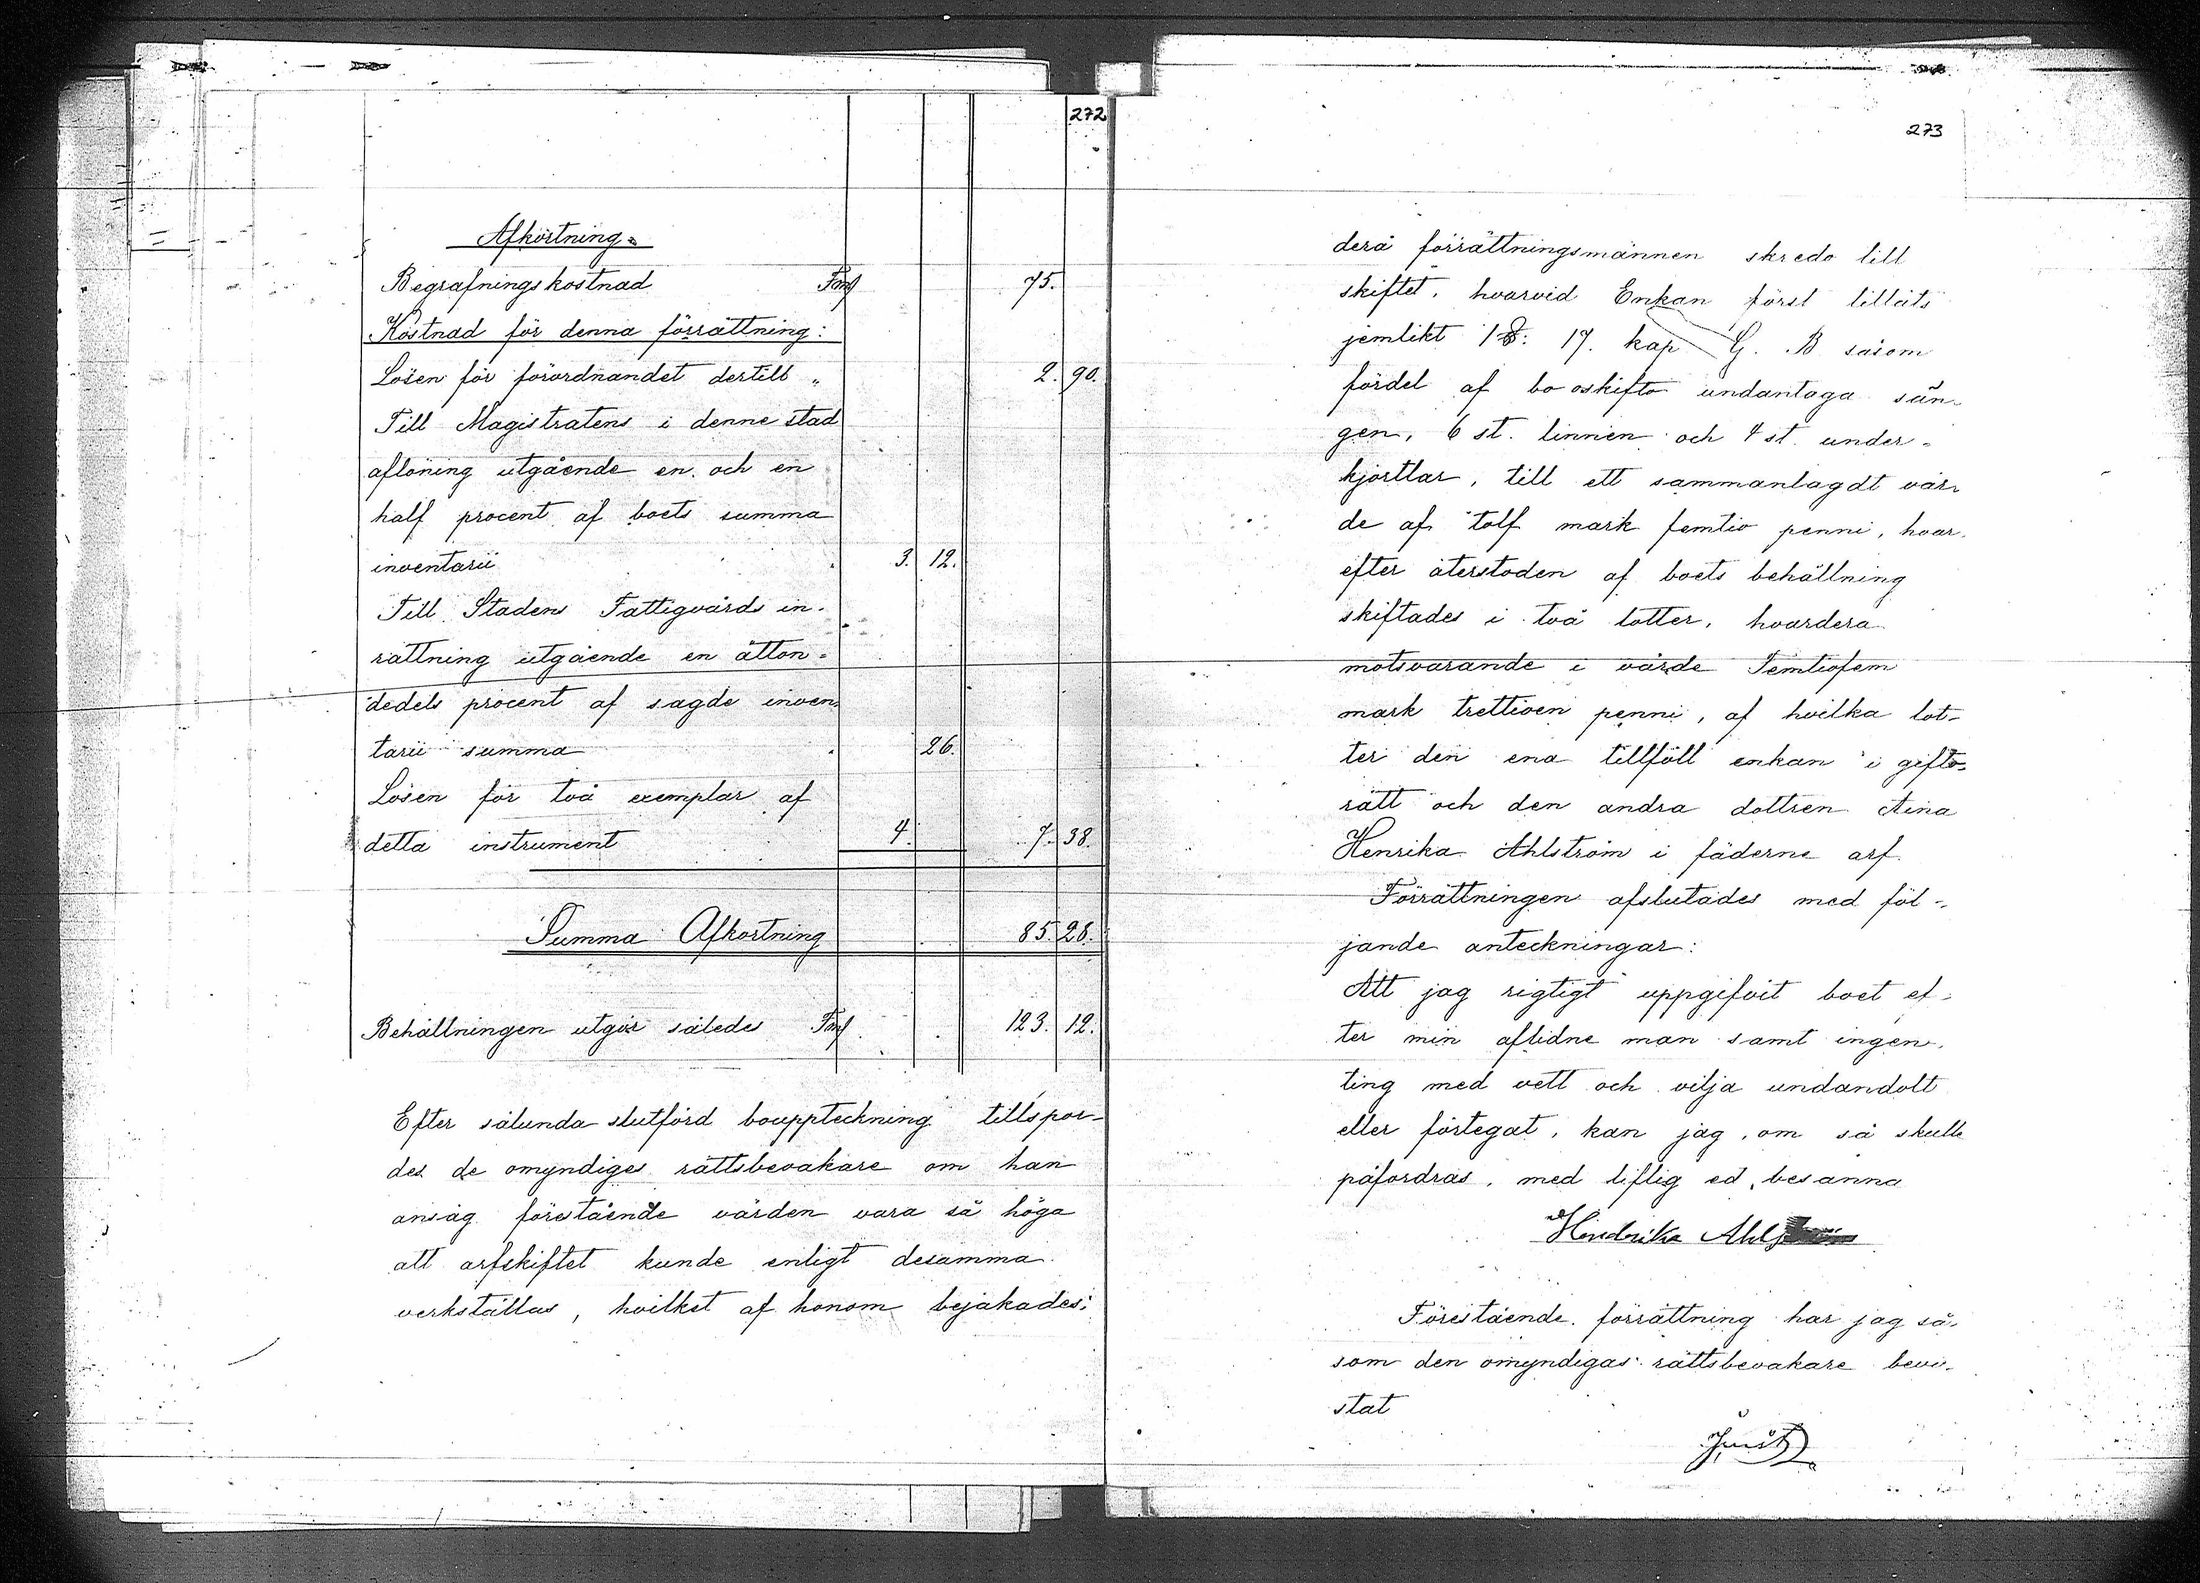 272
Afkortning.
Begrafningskostnad Fmf 75.
Kostnad för denna förrättning:
Lösen för förordnandet dertill " 2. 90.
Till Magistratens i denne stad
aflöning utgående en och en
half procent af boets summa
inventarii 3. 12.
Till Stadens Fattigvårds in-
rättning utgående en åtton-
dedels procent af sagde inven-
tarii summa 26.
Lösen för två exemplar af
detta instrument 4. 7. 38.
Summa Afkortning 85. 28.
Behållningen utgör således Fmf 123. 12.
Efter sålunda slutförd bouppteckning tillspor-
des de omyndiges rättsbevakare om han
ansåg förestående värden vara så höga
att arfskiftet kunde enligt desamma
verkställas, hvilket af honom bejakades;
273
derå förrättningsmännen skredo till
skiftet, hvarvid Enkan först tilläts
jemlikt 17. kap G. B såsom
fördel af bo oskifto undantaga sän-
gen, 6 st. linnen och 4 st. under-
kjortlar, till ett sammanlagdt vär-
de af tolf mark femtio penni, hvar-
efter återstoden af boets behållning
skiftades i två lotter, hvardera
motsvarande i värde Femtiofem
mark trettioen penni, af hvilka lot-
ter den ena tillföll enkan i gifto-
rätt och den andra dottren Aina
Henrika Ahlström i fäderne arf.
Förrättningen afslutades med föl-
jande anteckningar:
Att jag rigtigt uppgifvit boet ef-
ter min aflidne man samt ingen-
ting med vett och vilja undandolt
eller förtegat, kan jag, om så skulle
påfordras, med liflig ed, besanna
Hendrika
Förestående förrättning har jag så-
som den omyndigas rättsbevakare bevi-
stat